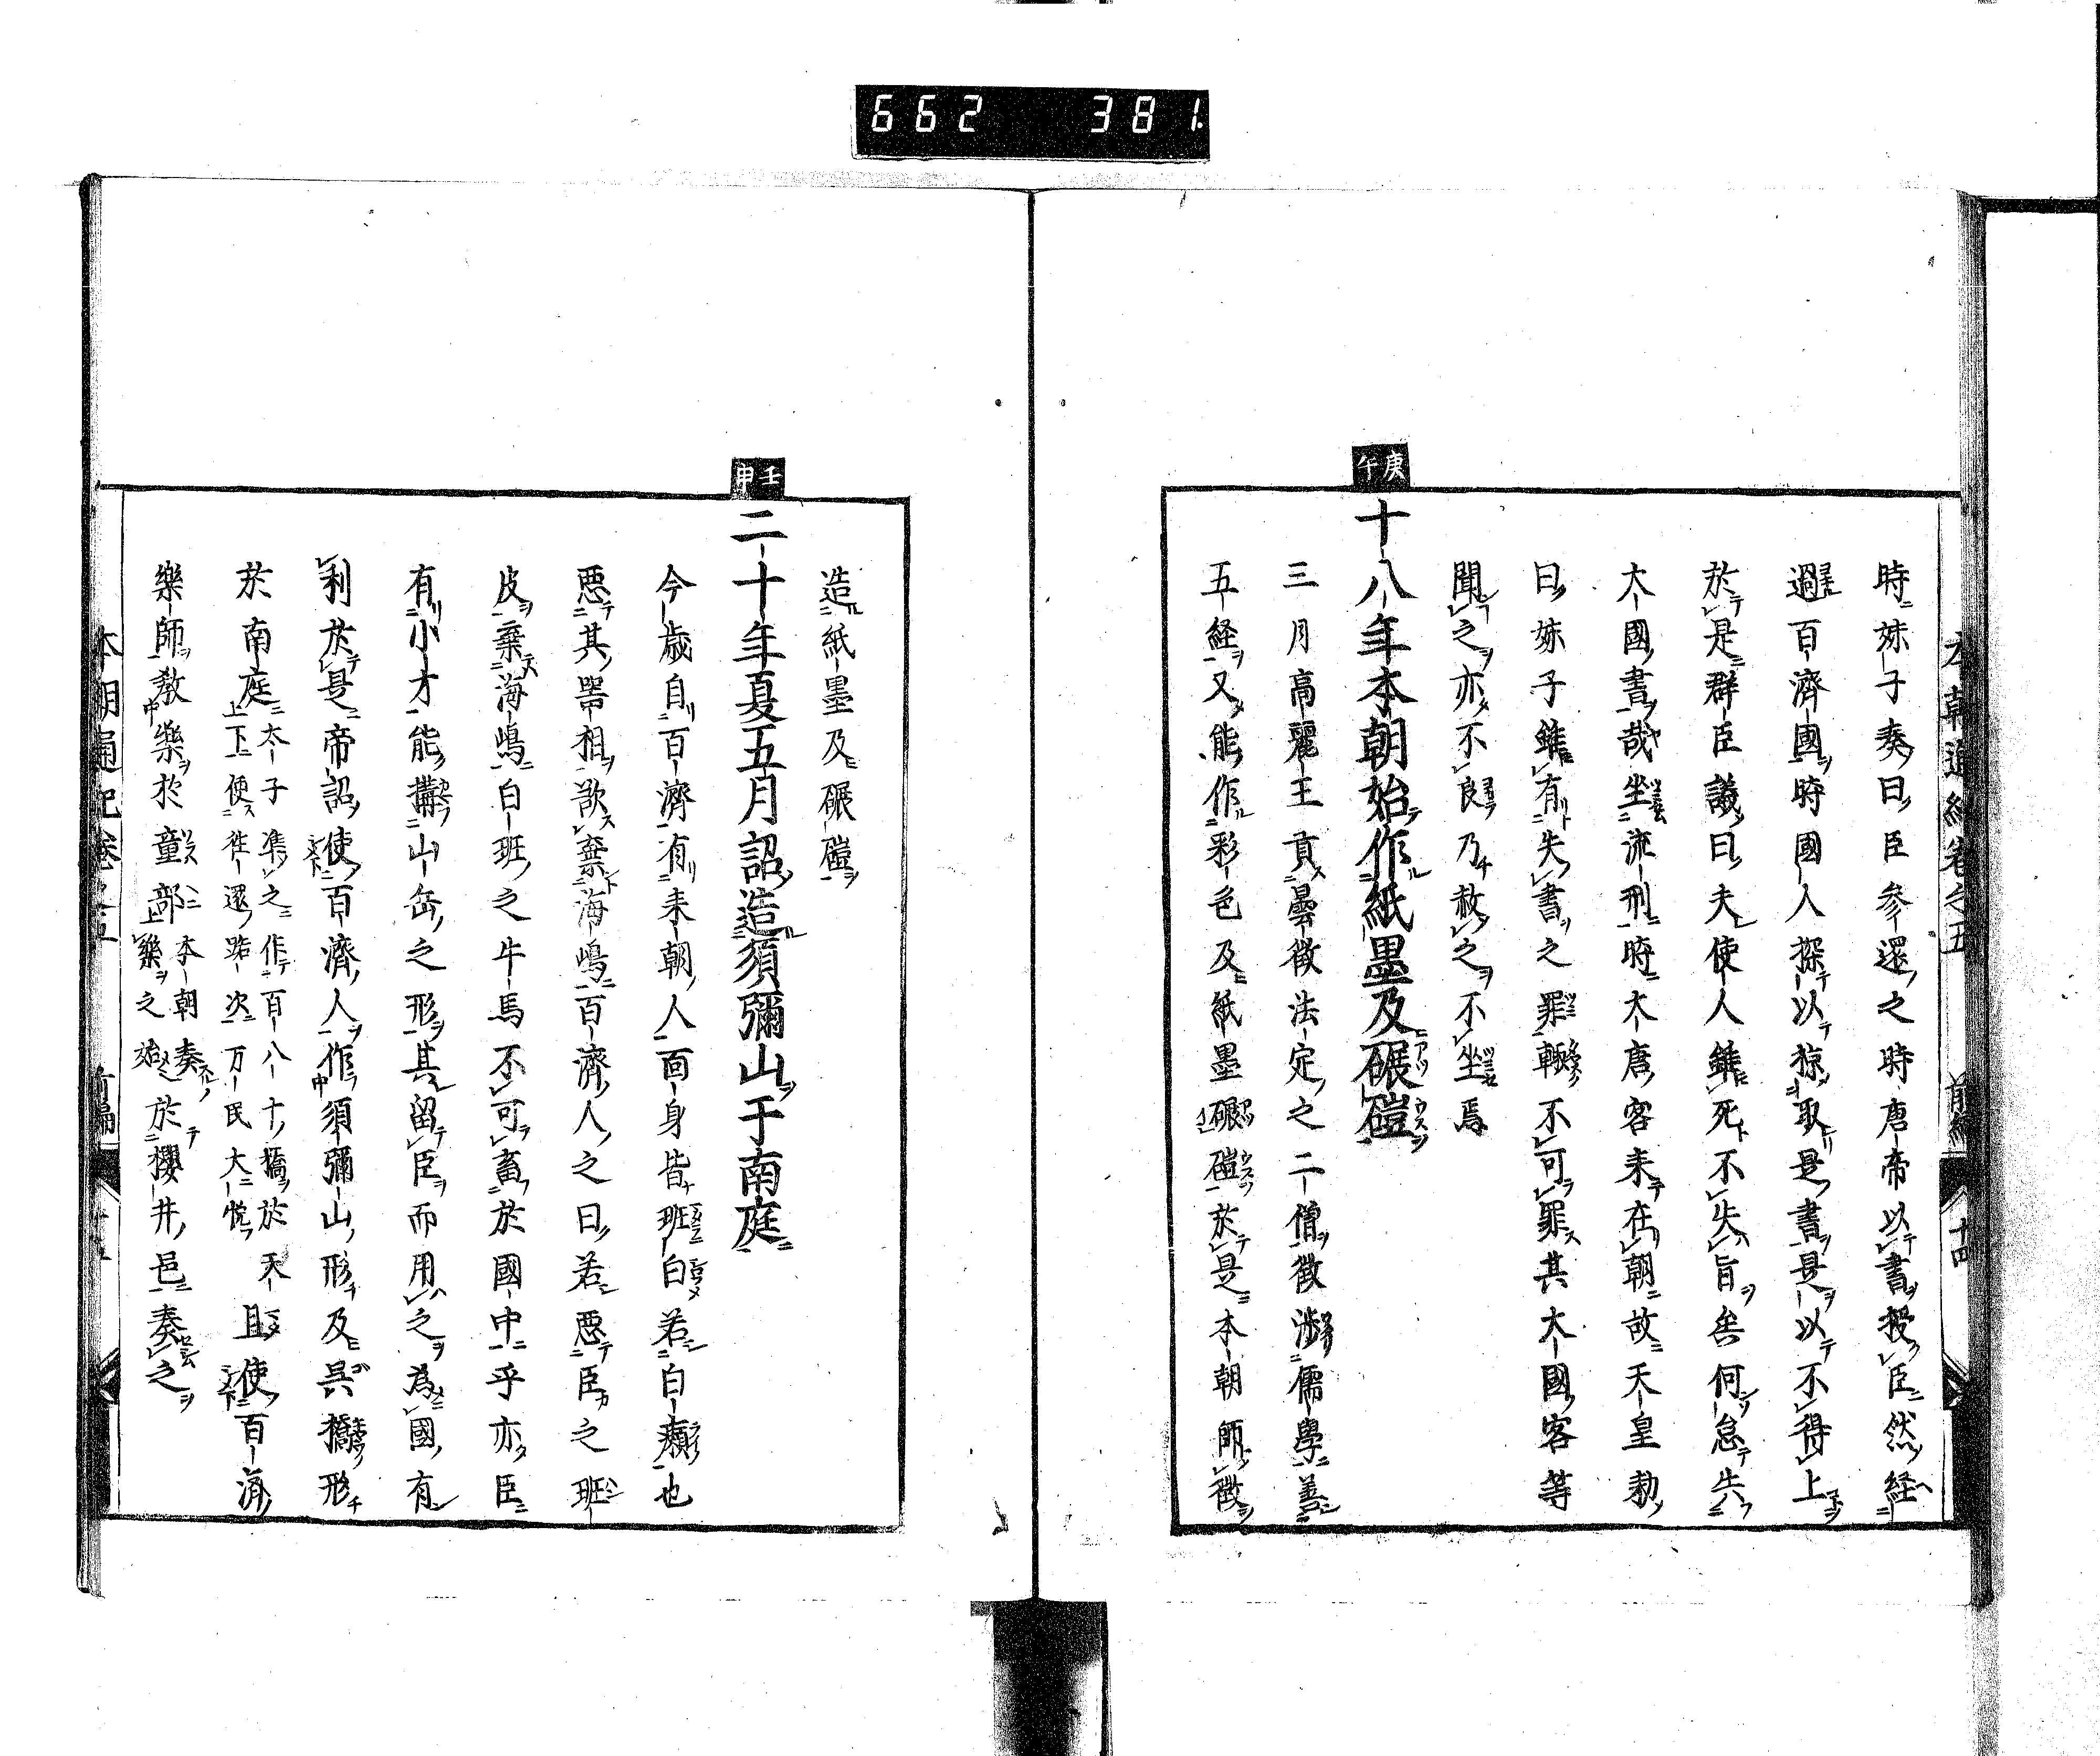 662 381
本朝通紀卷之五 前編 十四
時妹子奏曰臣参還之時唐帝以書授臣然経
過百濟國時國人探以掠取是書是以不得上
於是群臣議曰夫使人雖死不失旨矣何怠失
大國書哉坐流刑時大唐客来在朝故天皇勅
曰妹子雖有失書之罪輙不可罪其大國客等
聞之亦不良乃赦之不坐焉
庚午
十八年本朝始作紙墨及碾磑
三月高麗王貢曇徴法定之二僧徴渉儒學善
五経又能作彩色及紙墨碾磑於是本朝師徴
造紙墨及碾磑
壬申
二十年夏五月詔造須彌山于南庭
今歳自百濟有来朝人面身皆班白若白癩也
悪其異相欲棄海嶋百濟人之曰若悪臣之班
皮棄海嶋白班之牛馬不可畜於國中乎亦臣
有小才能搆山岳之形其留臣而用之為國有
利於是帝詔使百濟人作須彌山形及呉橋形
於南庭太子準之作百八十橋於天
下便徃還路次万民大悦且使百濟
樂師教樂於童部本朝奏
樂之始於櫻井邑奏之
本朝通紀卷之五 前編